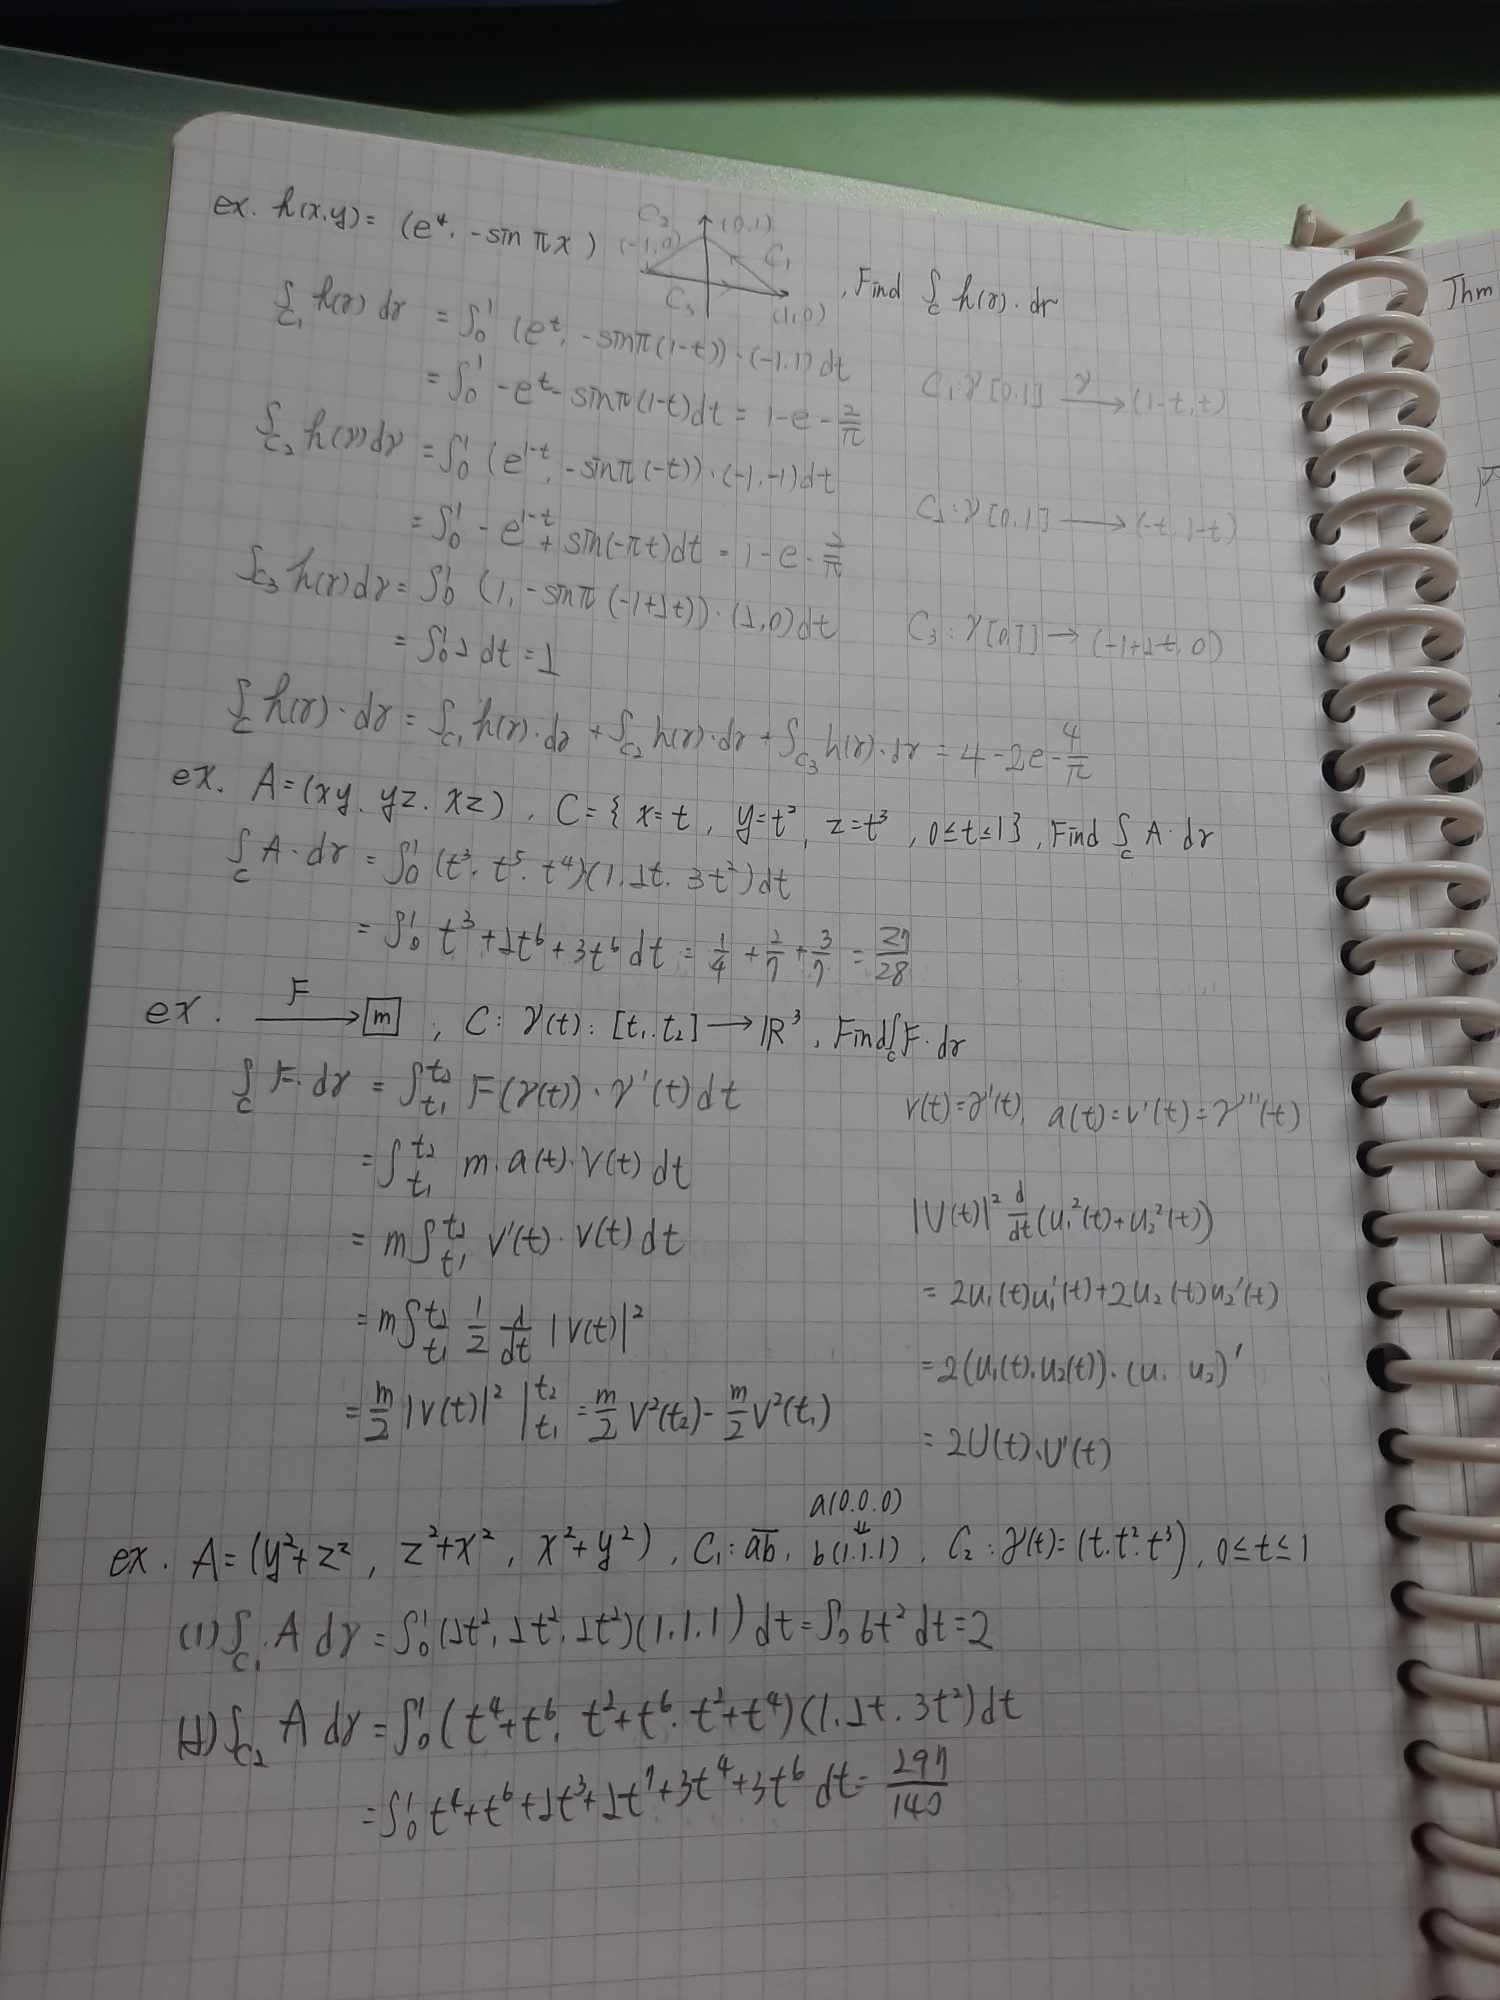 ex. h(x,y) = (e^y, -sin πx)
C₂ (0,1)
(-1,0) C₁
C₃ (1,0)
, Find ∫_C h(r)·dr
∫_C₁ h(r) dr = ∫₀¹ (e^t, -sinπ(1-t))·(-1,1)dt
C₁: γ[0,1] —γ→ (1-t, t)
= ∫₀¹ -e^t - sinπ(1-t)dt = 1-e-2/π
∫_C₂ h(r)dr = ∫₀¹ (e^(1-t), -sinπ(-t))·(-1,-1)dt
C₂: γ[0,1] → (-t, 1-t)
= ∫₀¹ -e^(1-t) + sin(-πt)dt = 1-e-2/π
∫_C₃ h(r)dr = ∫₀¹ (1, -sinπ(-1+2t))·(2,0)dt
C₃: γ[0,1] → (-1+2t, 0)
= ∫₀¹ 2 dt = 2
∫_C h(r)·dr = ∫_C₁ h(r)·dr + ∫_C₂ h(r)·dr + ∫_C₃ h(r)·dr = 4-2e-4/π
ex. A=(xy, yz, xz), C={x=t, y=t², z=t³, 0≤t≤1}, Find ∫_C A·dr
∫_C A·dr = ∫₀¹ (t³, t⁵, t⁴)(1, 2t, 3t²)dt
= ∫₀¹ t³+2t⁶+3t⁶ dt = 1/4 + 2/7 + 3/7 = 27/28
ex. —F→ [m], C: γ(t): [t₁,t₂] → ℝ³, Find ∫_C F·dr
∫_C F·dr = ∫_t₁^t₂ F(γ(t))·γ'(t)dt
v(t)=γ'(t), a(t)=v'(t)=γ'''(t)
= ∫_t₁^t₂ m·a(t)·v(t)dt
|U(t)|² d/dt (u₁²(t)+u₂²(t))
= m∫_t₁^t₂ v'(t)·v(t)dt
= 2u₁(t)u₁'(t)+2u₂(t)u₂'(t)
= m∫_t₁^t₂ 1/2 d/dt |v(t)|²
= 2(u₁(t),u₂(t))·(u₁ u₂)'
= m/2 |v(t)|² |_t₁^t₂ = m/2 V²(t₂) - m/2 V²(t₁)
= 2U(t)·U'(t)
a(0,0,0)
ex. A=(y²+z², z²+x², x²+y²), C₁: ab, b(1,1,1), C₂: γ(t)=(t,t²,t³), 0≤t≤1
(1) ∫_C₁ A dr = ∫₀¹ (2t², 2t², 2t²)(1,1,1)dt = ∫₀¹ 6t² dt = 2
(2) ∫_C₂ A dr = ∫₀¹ (t⁴+t⁶, t²+t⁶, t²+t⁴)(1, 2t, 3t²)dt
= ∫₀¹ t⁴+t⁶+2t³+2t⁷+3t⁴+3t⁶ dt = 297/140
Thm